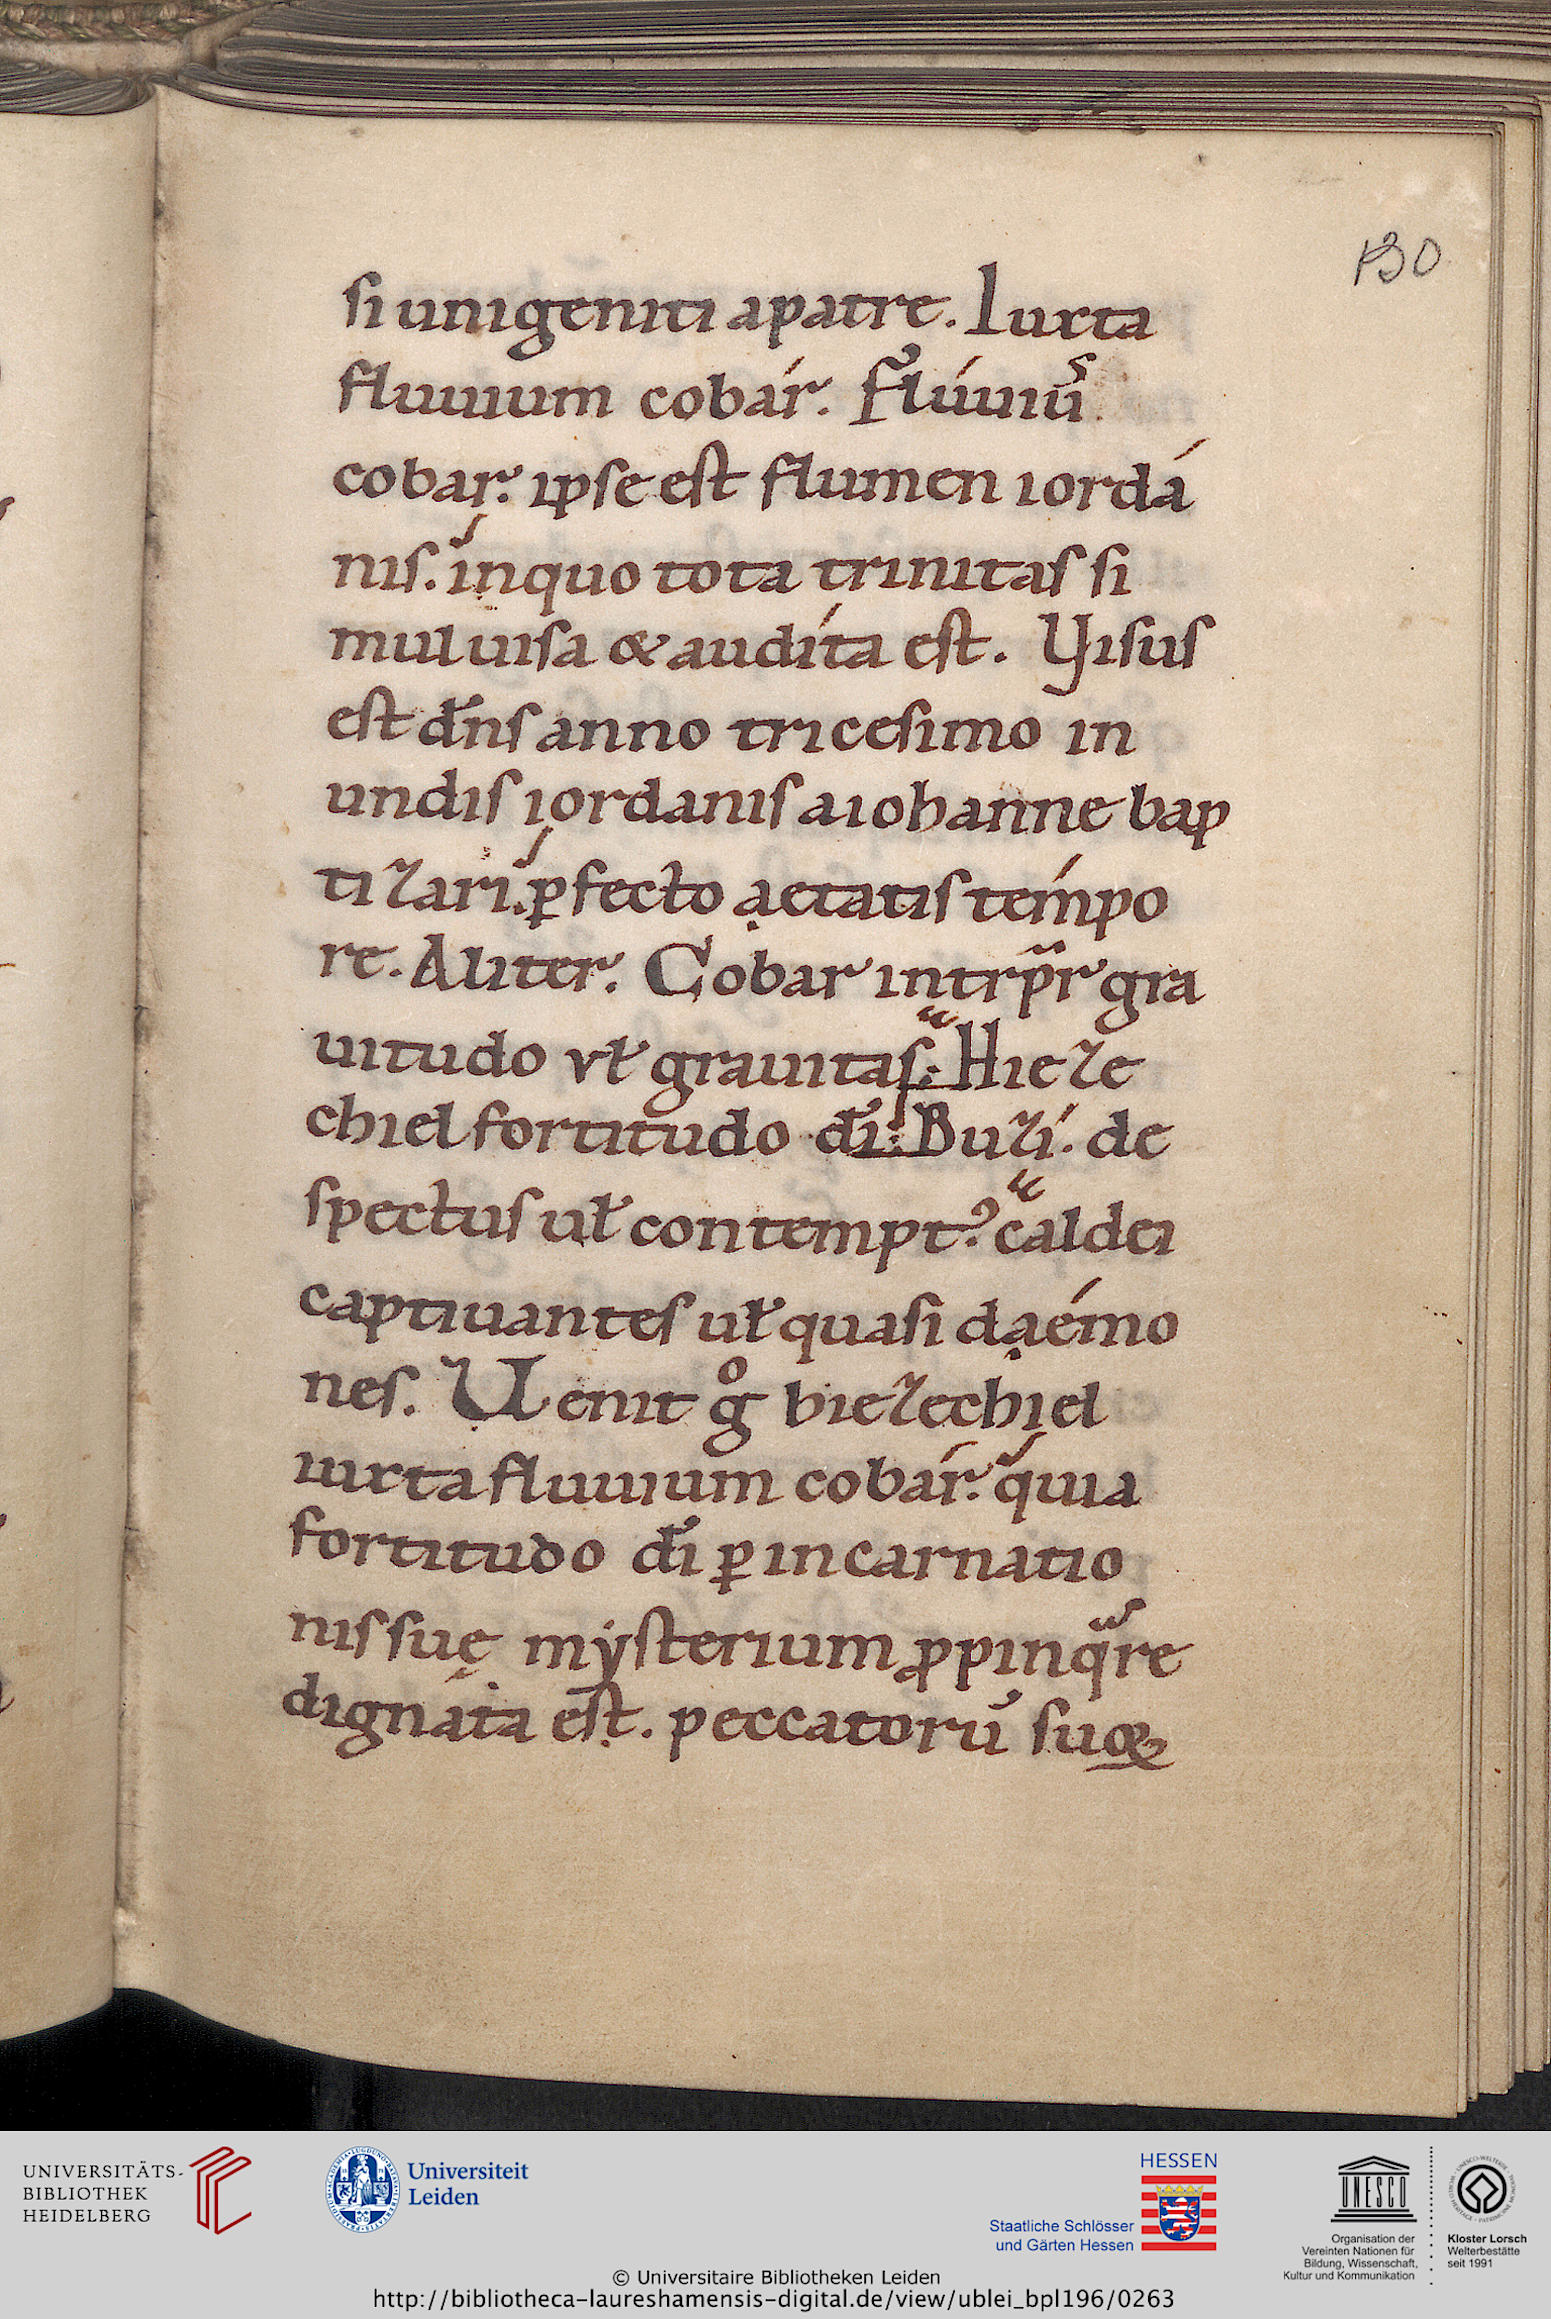 130
si unigeniti apatre. Iuxta
fluuium cobár. Flúuiū
cobar. ipse est flumen iordá
nis. ínquo tota trinitas si
mul uisa & audíta est. Uisus
est dn̄s anno tricesimo in
undis iordanis aiohanne bap
tizari. ꝑfecto aetatis témpo
re. Aliter. Cobar intrp̄r gra
uitudo vł grauitas; Hieze
chiel fortitudo dī; Buzí. de
spectus uł contempt᷒. caldei
captiuantes uł quasi daémo
nes. Uenit gͦ hiezechiel
iuxta fluuium cobár. quia
fortitudo dī ꝑ incarnatio
nis suę mẏsterium ꝓpinqͣre
dignáta est. peccatorū suoꝝ
UNIVERSITÄTS-
BIBLIOTHEK
HEIDELBERG
Universiteit
Leiden
HESSEN
Staatliche Schlösser
und Gärten Hessen
UNESCO
Organisation der
Vereinten Nationen für
Bildung, Wissenschaft,
Kultur und Kommunikation
Kloster Lorsch
Welterbestätte
seit 1991
© Universitaire Bibliotheken Leiden
http://bibliotheca-laureshamensis-digital.de/view/ublei_bpl196/0263